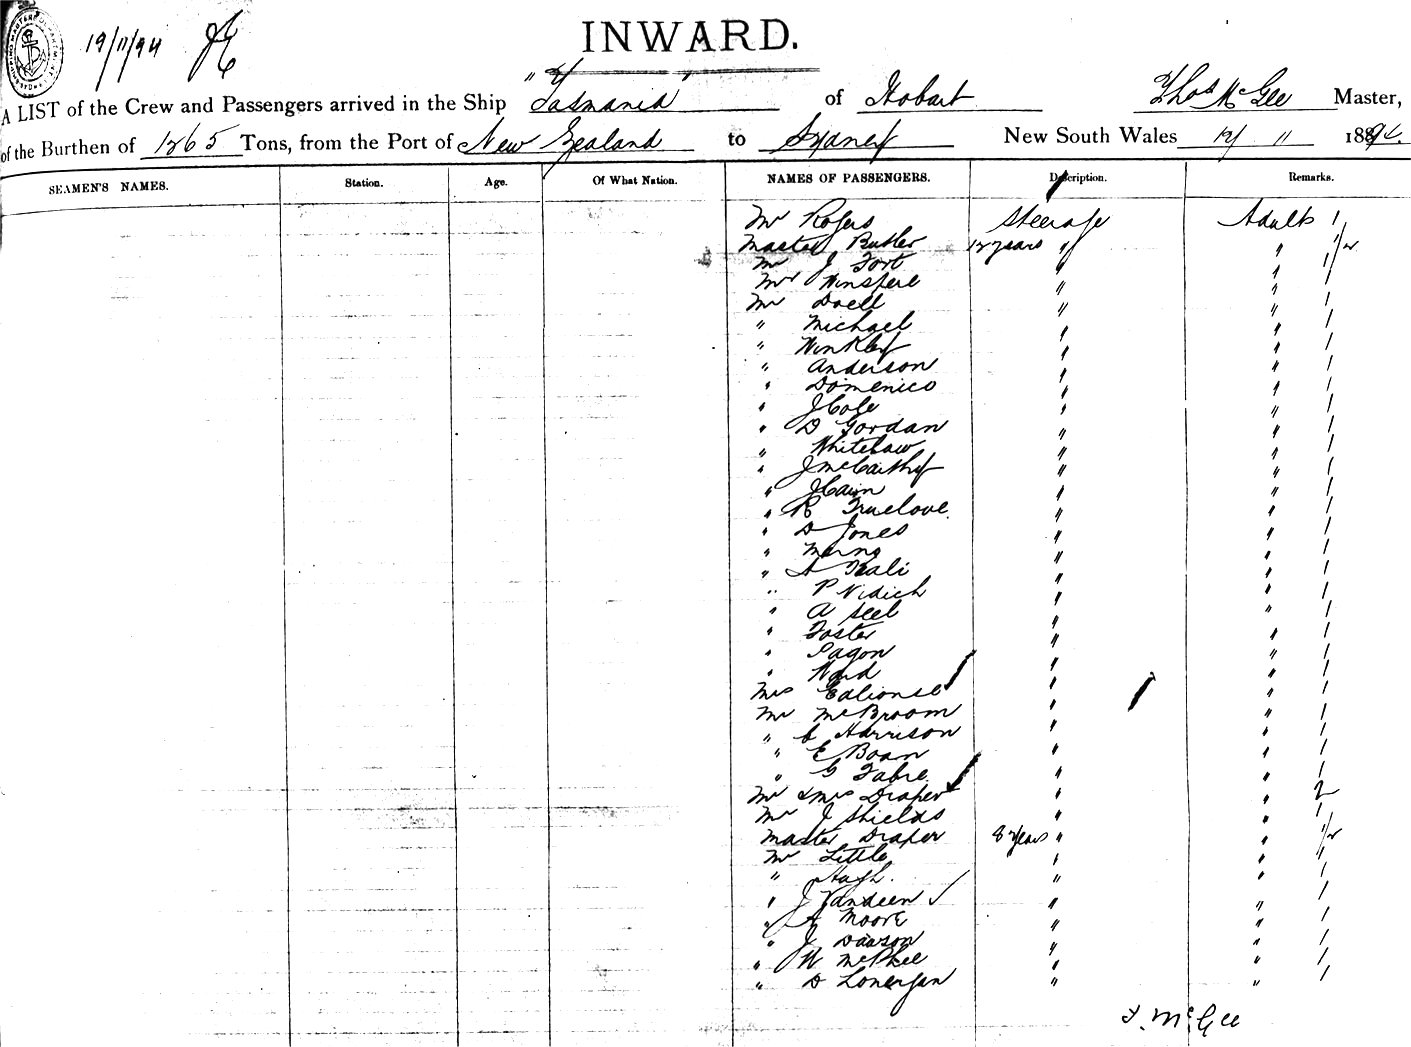 19/11/94
INWARD.
A LIST of the Crew and Passengers arrived in the Ship "Tasmania" of Hobart Thos McGee Master,
of the Burthen of 1265 Tons, from the Port of New Zealand to Sydney New South Wales 19 11 1894.
SEAMEN'S NAMES. Station. Age. Of What Nation. NAMES OF PASSENGERS. Description. Remarks.
Mr Rogers Steerage Adults 1
Master Butler 12 years " " 1/2
Mr J Fort " " 1
Mr Winspere " "
Mr Doell " " 1
" Michael " " 1
" Winkley " " 1
" Anderson " " 1
" Domenico " " 1
" J Cole " " 1
" D Gordan " " 1
" Whitelaw " " 1
" J McCarthy " " 1
" J Cairn " " 1
" R Truelove " " 1
" D Jones " " 1
" Marno " " 1
" A Kali " " 1
" P Nidich " " 1
" A Seel " " 1
" Foster " " 1
" Pagon " " 1
" Ward " " 1
Mrs " " 1
Mr McBroom " " 1
" C Harrison " " 1
" E Boan " " 1
" G Fabre " " 1
Mr & Mrs Draper " " 2
Mr J Shields " " 1
Master Draper 8 years " " 1/2
Mr Little " " 1
" Hugh " " 1
" J Vandeen " " 1
" A Moore " " 1
" J Dawson " " 1
" W McPhee " " 1
" D Lonergan " " 1
T. McGee